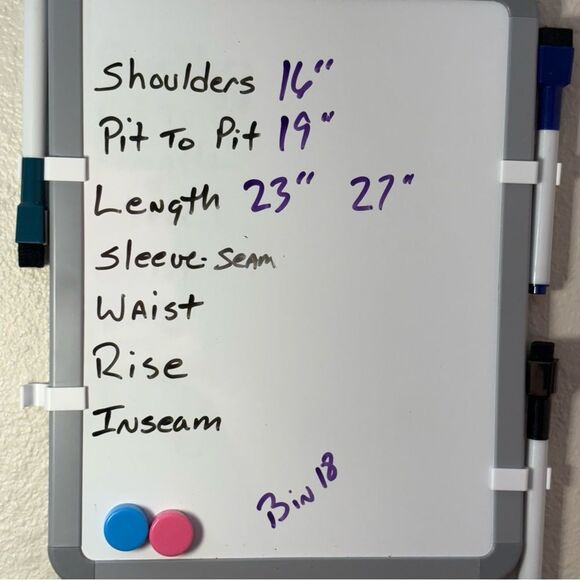 Shoulders 16"
Pit To Pit 19"
Length 23" 27"
Sleeve-Seam
Waist
Rise
Inseam
Bin 18